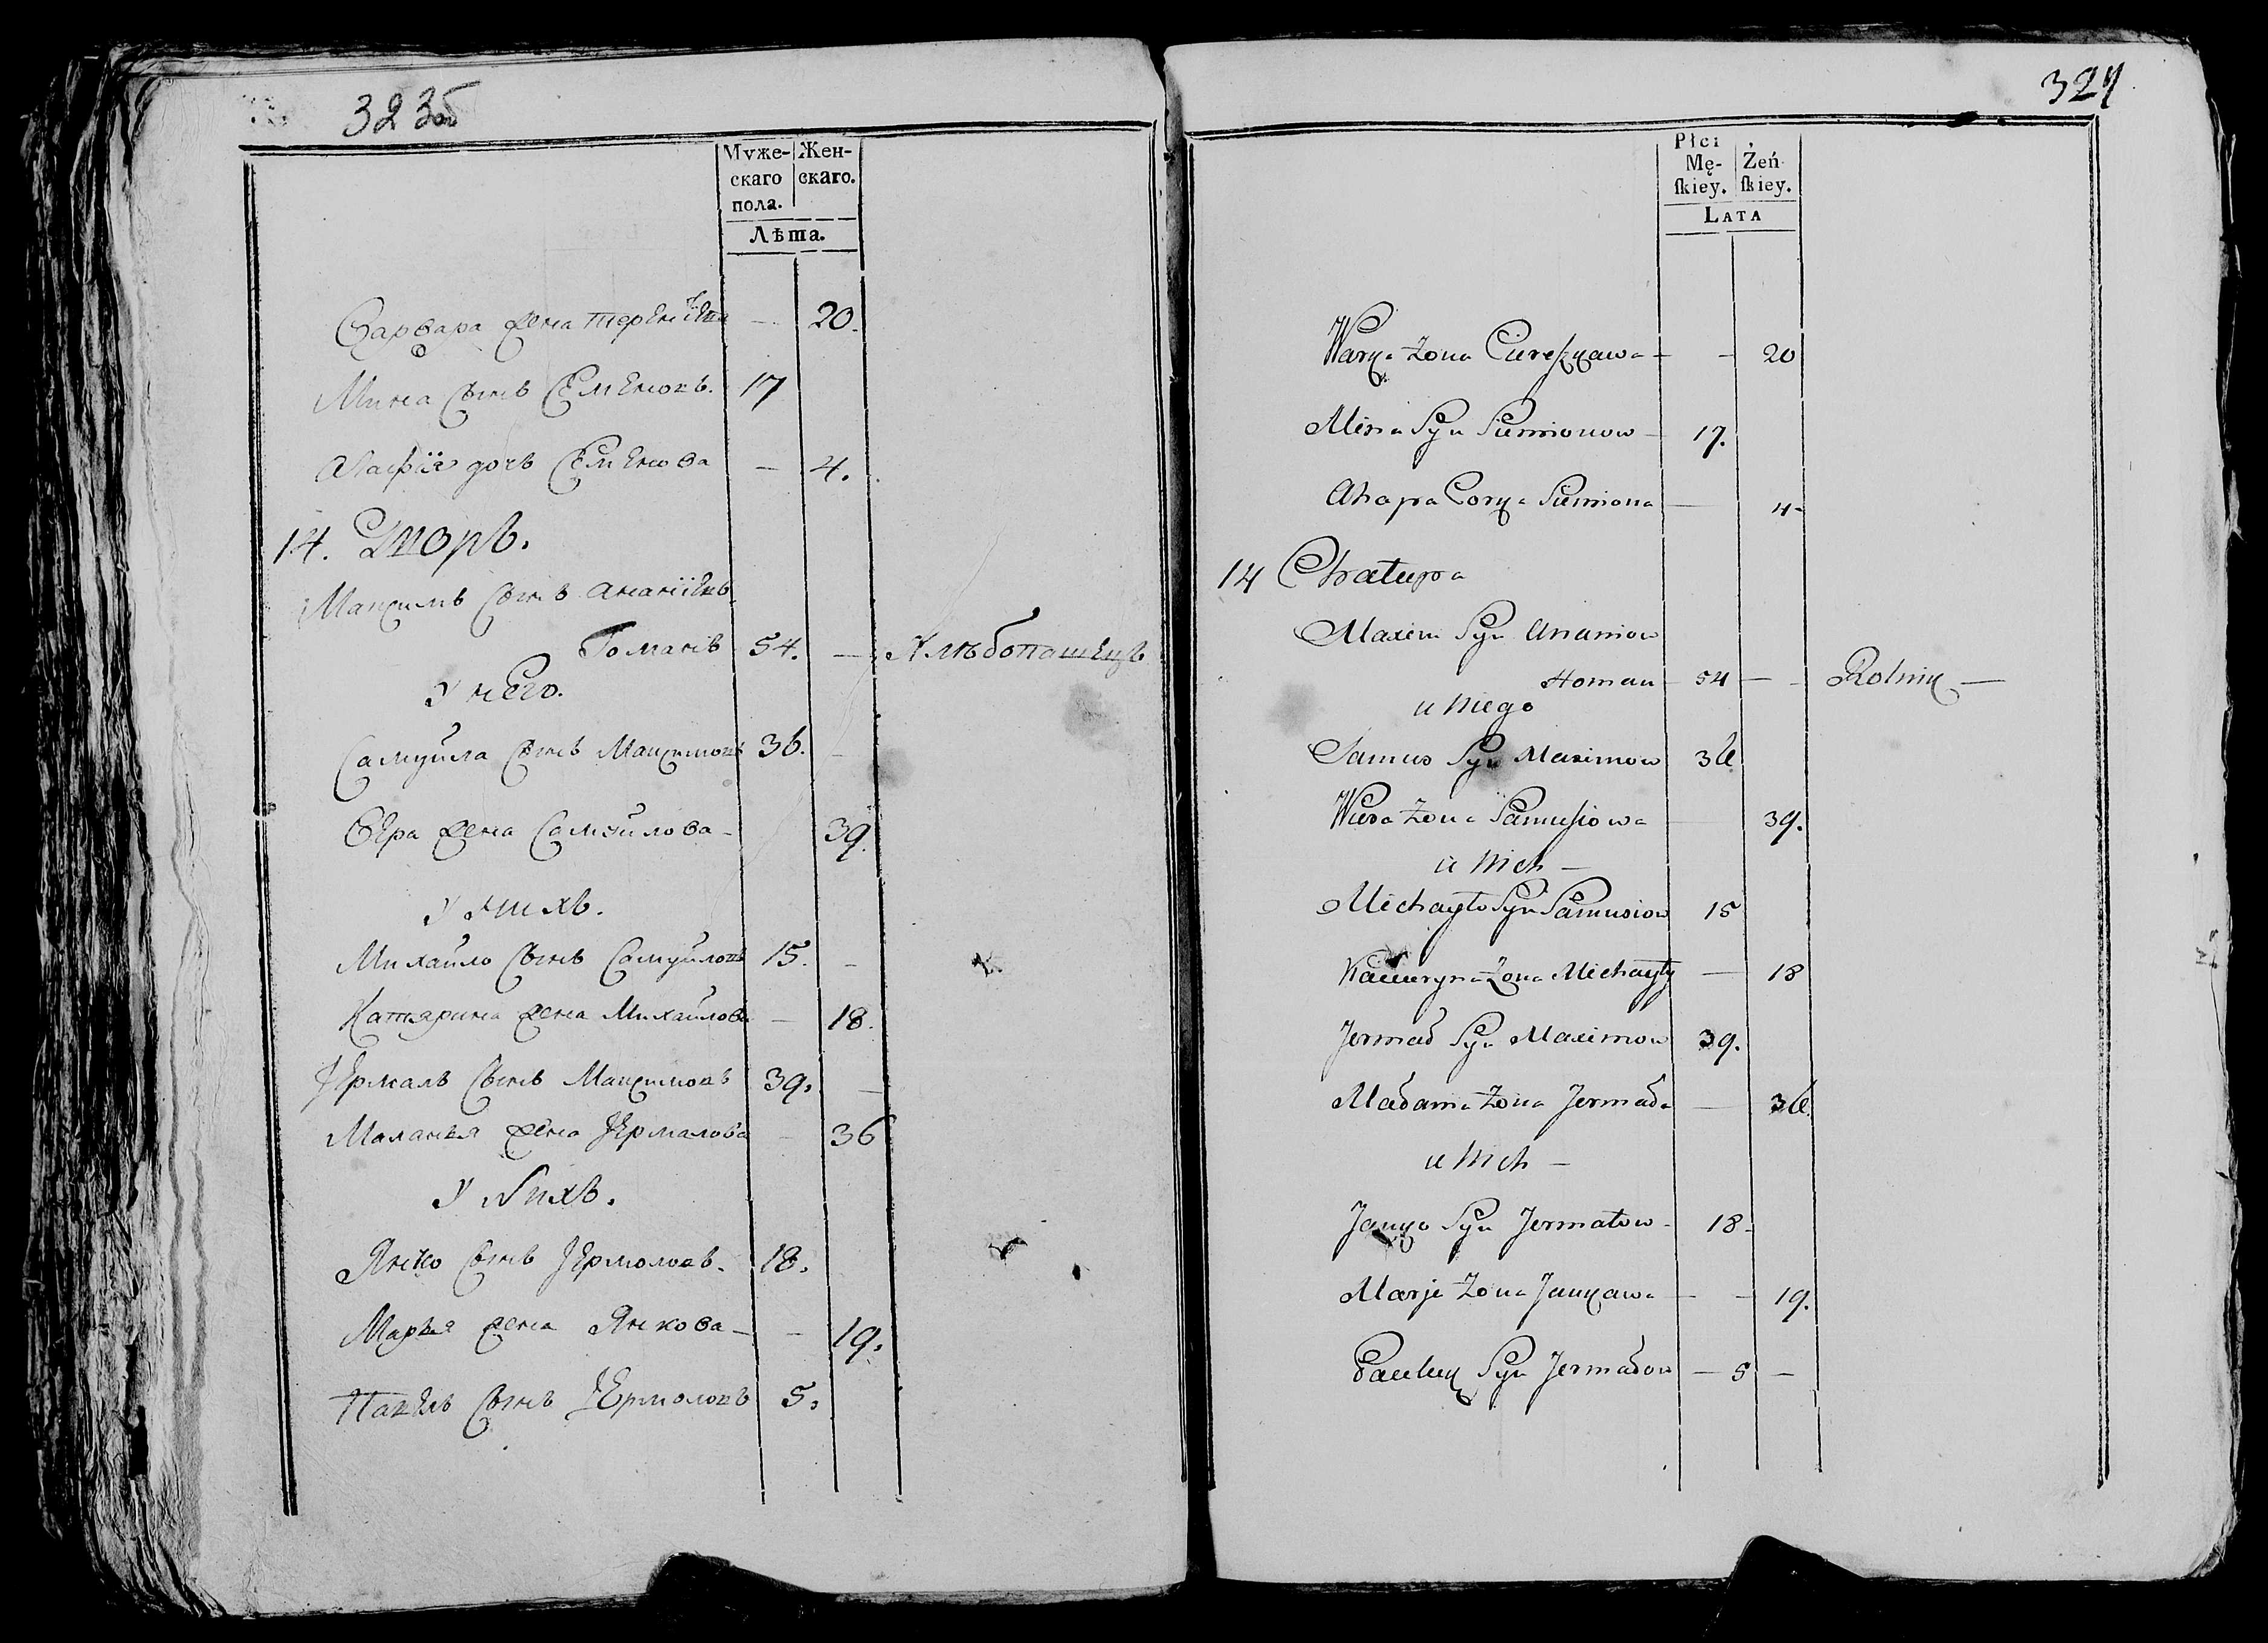 323об
Муже-
скаго
пола.
Жен-
скаго.
Лѣта.
Варвара жена Терентіева — 20.
Мина сынъ Семеновъ. 17
Агафія дочь Семенова — 4.
14. Дворъ.
Максимъ сынъ Ананіевъ
Гоманъ 54. — Хлѣбопашецъ
У него.
Самуйла сынъ Максимовъ 36. —
Вера жена Самуйлова — 39.
У нихъ.
Михайло сынъ Самуйловъ 15. —
Катярина жена Михайлова — 18.
Ермалъ сынъ Максимовъ 39. —
Маланья жена Ермалова — 36
У нихъ.
Янко сынъ Ермоловъ. 18.
Марья жена Янкова — — 19.
Павелъ сынъ Ермоловъ 5.
324
Płci
Mę-
ſkiey.
Żeń-
ſkiey.
LATA
Warka Żona — — 20
Mina Syn Siemionow — 17.
Ahapa Corka Siemiona — 4 -
14 Chałupa
Maxim Syn Ananiow
Homan — 54 — — Rolnik —
u Niego
Samuś Syn Maximow 36
Wiera Żona Samusiowa — 39.
u Nich —
Michayło Syn Samusiow 15
Kateryna Żona Michayły — 18
Jermał Syn Maximow 39.
Małania Żona Jermała — 36.
u Nich —
Janko Syn Jermałow - 18 -
Marja Żona Jankawa — — 19.
Pawluk Syn Jermałow — 5 —